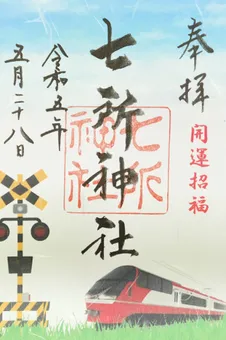 奉拝
開運招福
七所神社
七所神社
令和五年
五月二十八日